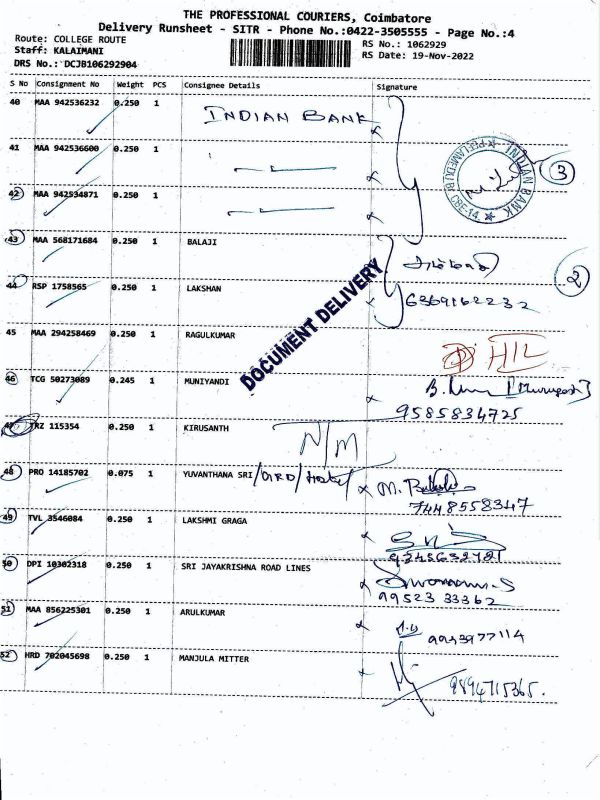 THE PROFESSIONAL COURIERS, Coimbatore
Delivery Runsheet - SITR - Phone No.:0422-3505555 - Page No.:4
Route: COLLEGE ROUTE RS No.: 1062929
Staff: KALAIMANI RS Date: 19-Nov-2022
DRS No.: DCJB106292904
S No Consignment No Weight PCS Consignee Details Signature
40 MAA 942536232 0.250 1 INDIAN BANK
41 MAA 942536600 0.250 1
INDIAN BANK PEELAMEDU BR CBE-14 3
42 MAA 942534871 0.250 1
43 MAA 568171684 0.250 1 BALAJI
2
44 RSP 1758565 0.250 1 LAKSHAN 6369162232
DOCUMENT DELIVERY
45 MAA 294258469 0.250 1 RAGULKUMAR HIL
46 TCG 50273089 0.245 1 MUNIYANDI
9585834725
47 TRZ 115354 0.250 1 KIRUSANTH N/M
48 PRO 14185702 0.075 1 YUVANTHANA SRI/GRD/Hostel M.
7448558347
49 TVL 3546084 0.250 1 LAKSHMI GRAGA
9245632781
50 DPI 10302318 0.250 1 SRI JAYAKRISHNA ROAD LINES
99523 33362
51 MAA 856225301 0.250 1 ARULKUMAR
9943977114
52 HRD 702045698 0.250 1 MANJULA MITTER
9894715365.